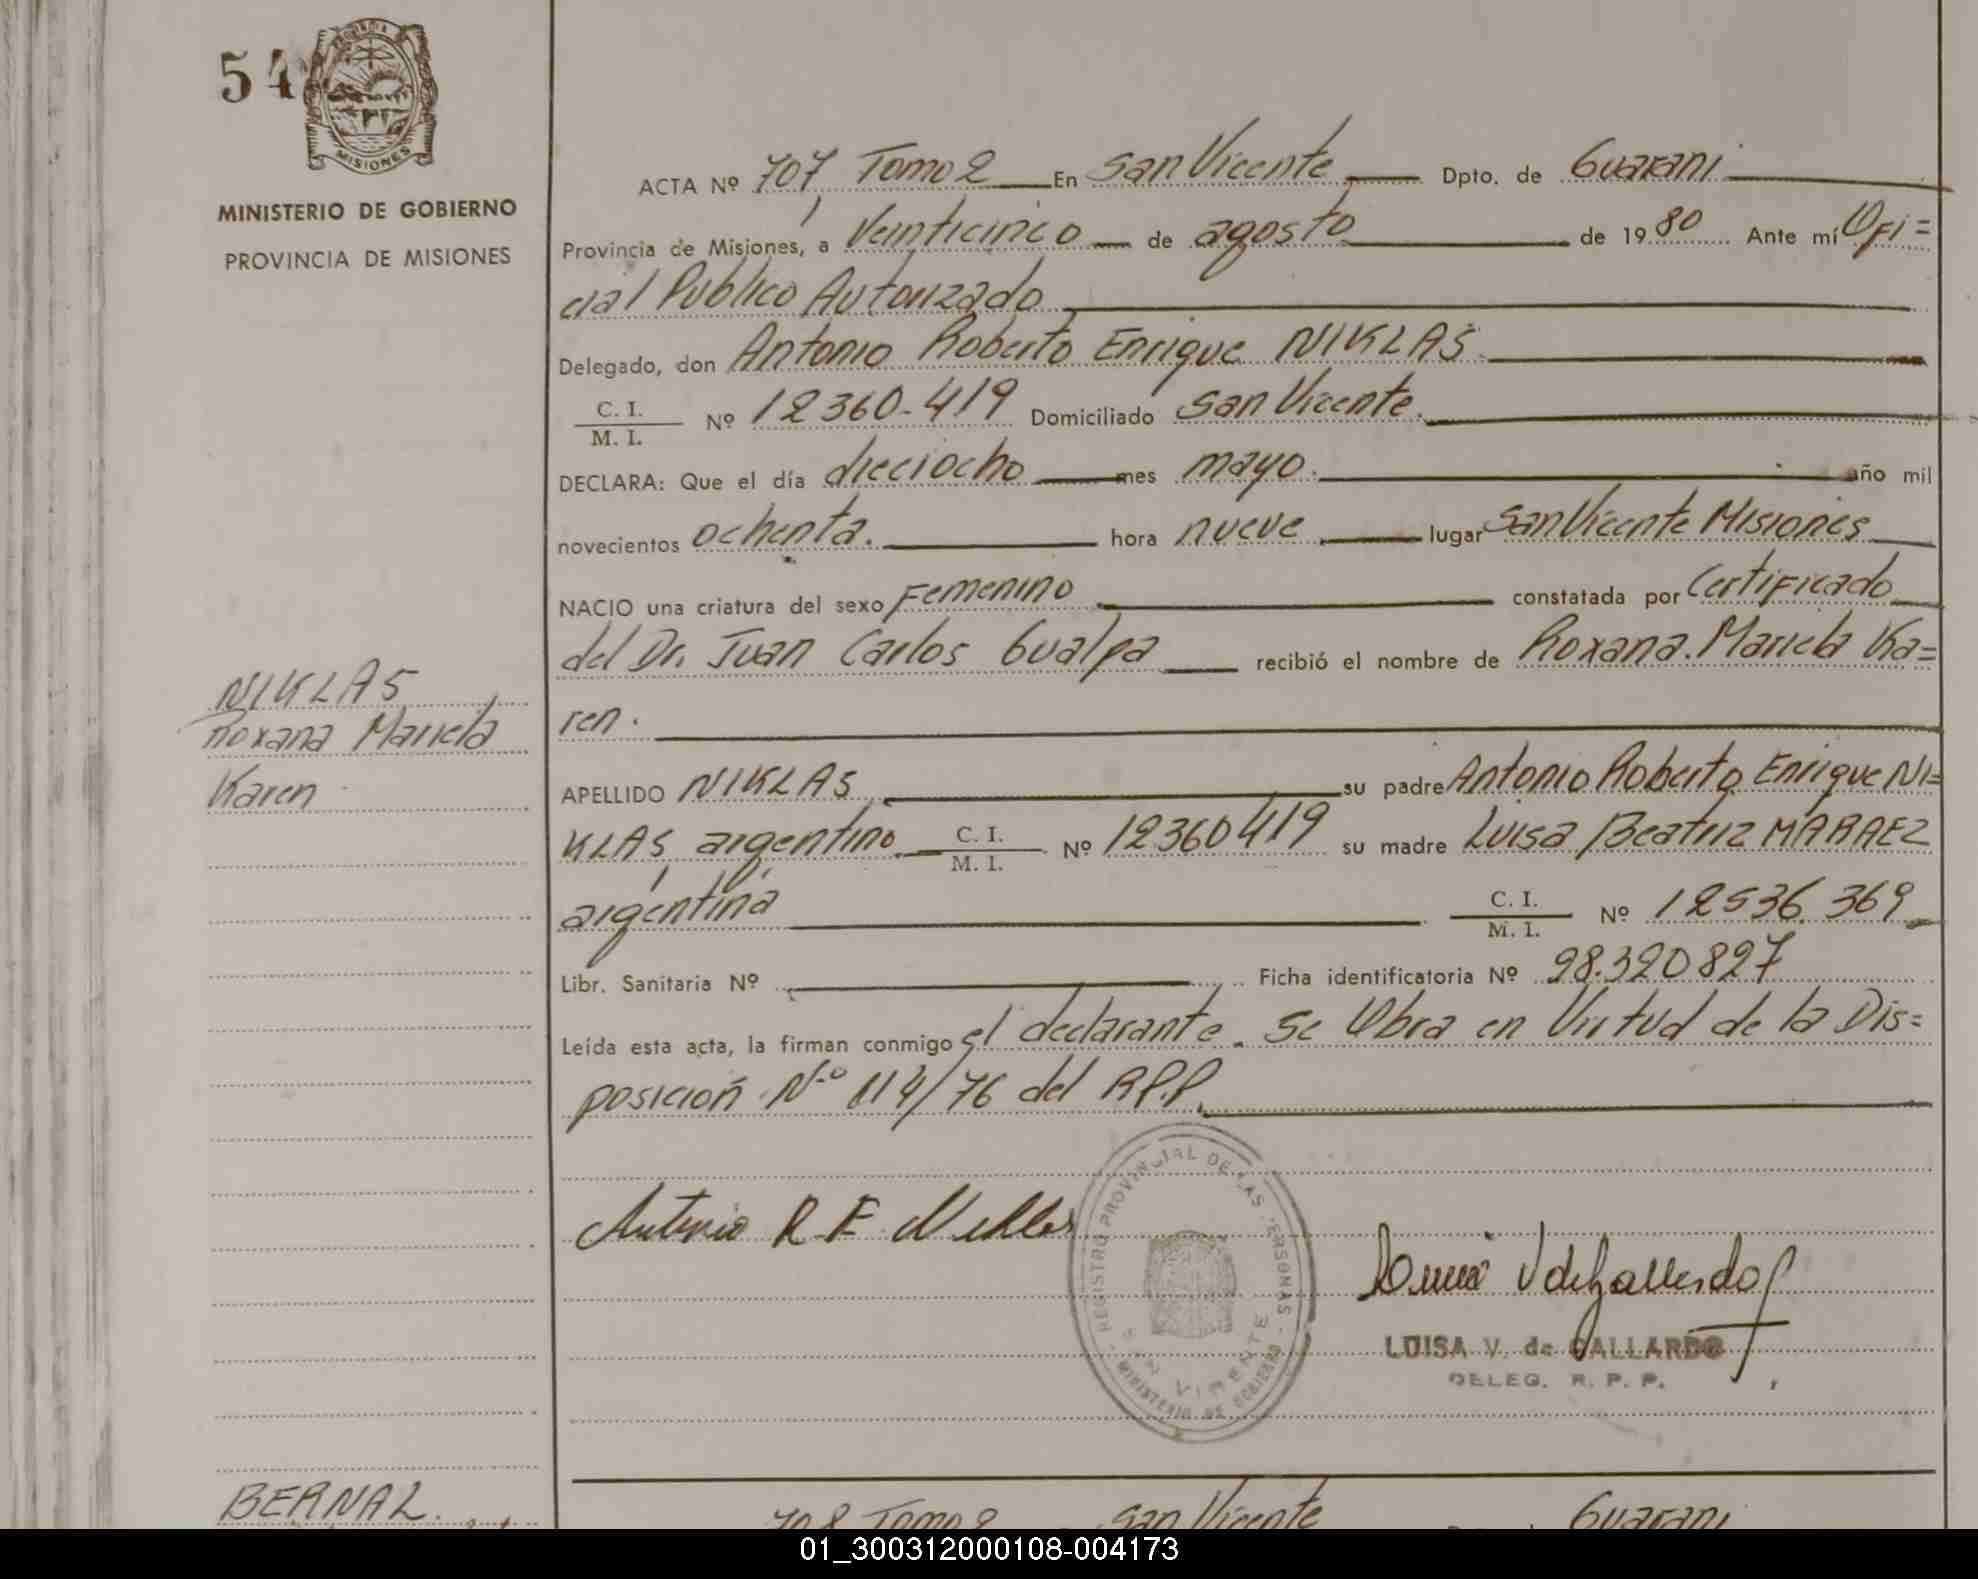 54
MISIONES
MINISTERIO DE GOBIERNO
PROVINCIA DE MISIONES
ACTA Nº 707, Tomo 2 En San Vicente Dpto. de Guarani
Provincia de Misiones, a Veinticinco de agosto de 1980 Ante mí Ofi=
cial Publico Autorizado
Delegado, don Antonio Roberto Enrique NIKLAS.
C. I.
M. I. Nº 12360-419 Domiciliado San Vicente.
DECLARA: Que el día dieciocho mes mayo. año mil
novecientos ochenta. hora nueve lugar San Vicente Misiones
NACIO una criatura del sexo Femenino constatada por Certificado
del Dr. Juan Carlos Gualpa recibió el nombre de Roxana Mariela Ka=
ren.
NIKLAS
Roxana Mariela
Karen
APELLIDO NIKLAS su padre Antonio Roberto Enrique NI=
KLAS, argentino. C. I.
M. I. Nº 12360419 su madre Luisa Beatriz MARAEZ
argentina C. I.
M. I. Nº 12536.369
Libr. Sanitaria Nº Ficha identificatoria Nº 28.320827
Leída esta acta, la firman conmigo el declarante. Se Obra en Virtud de la Dis=
posición Nº 114/76 del R.P.P.
Antonio R. E. Niklas
REGISTRO PROVINCIAL DE LAS PERSONAS
SAN VICENTE
MINISTERIO DE GOBIERNO
LUISA V. de GALLARDO
DELEG. R. P. P.
BERNAL.
708 Tomo 2 San Vicente Guarani
01_300312000108-004173